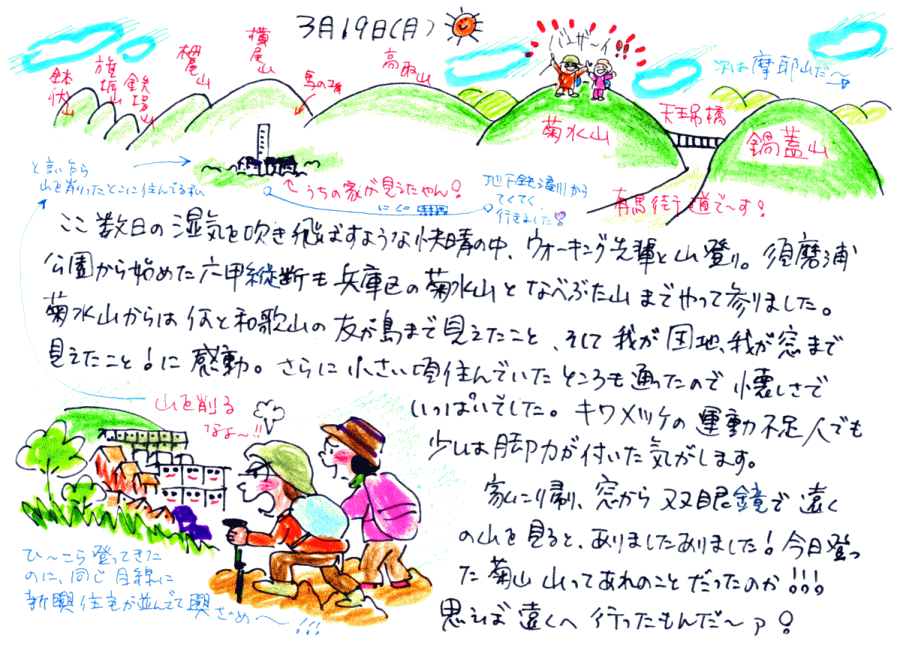 3月19日(月)
バンザーイ!!
鉢伏山
旗振山
鉄拐山
栂尾山
横尾山
馬の背
高取山
菊水山
天王吊橋
鍋蓋山
次は摩耶山だ〜
と言いながら
山を削ったとこに住んでる私
うちの家が見えたやん!
地下鉄湊川から
てくてく
行きました
有馬街道で〜す!
ここ数日の湿気を吹き飛ばすような快晴の中、ウォーキング先輩と山登り。須磨浦
公園から始めた六甲縦断も兵庫区の菊水山となべぶた山までやって参りました。
菊水山からは何と和歌山の友が島まで見えたこと、そして我が団地、我が窓まで
見えたこと!に感動。さらに小さい頃住んでいたところも通ったので懐しさで
いっぱいでした。キワメツケの運動不足人でも
少しは脚力が付いた気がします。
家に帰り、窓から双眼鏡で遠く
の山を見ると、ありましたありました!今日登っ
た菊山山ってあれのことだったのか!!!
思えば遠くへ行ったもんだ〜ァ!
山を削る
なよ〜!!
ひ〜こら登ってきた
のに、同じ目線に
新興住宅が並んでて興ざめ〜!!!